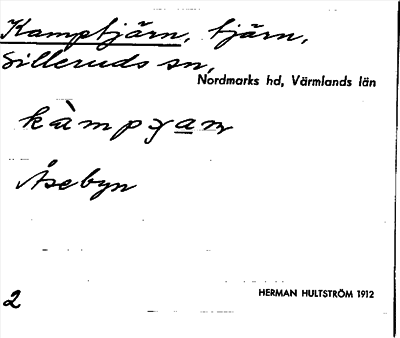 Kamptjärn, tjärn,
Silleruds sn,
Nordmarks hd, Värmlands län
kàmpɣan
Åsebyn
2
HERMAN HULTSTRÖM 1912